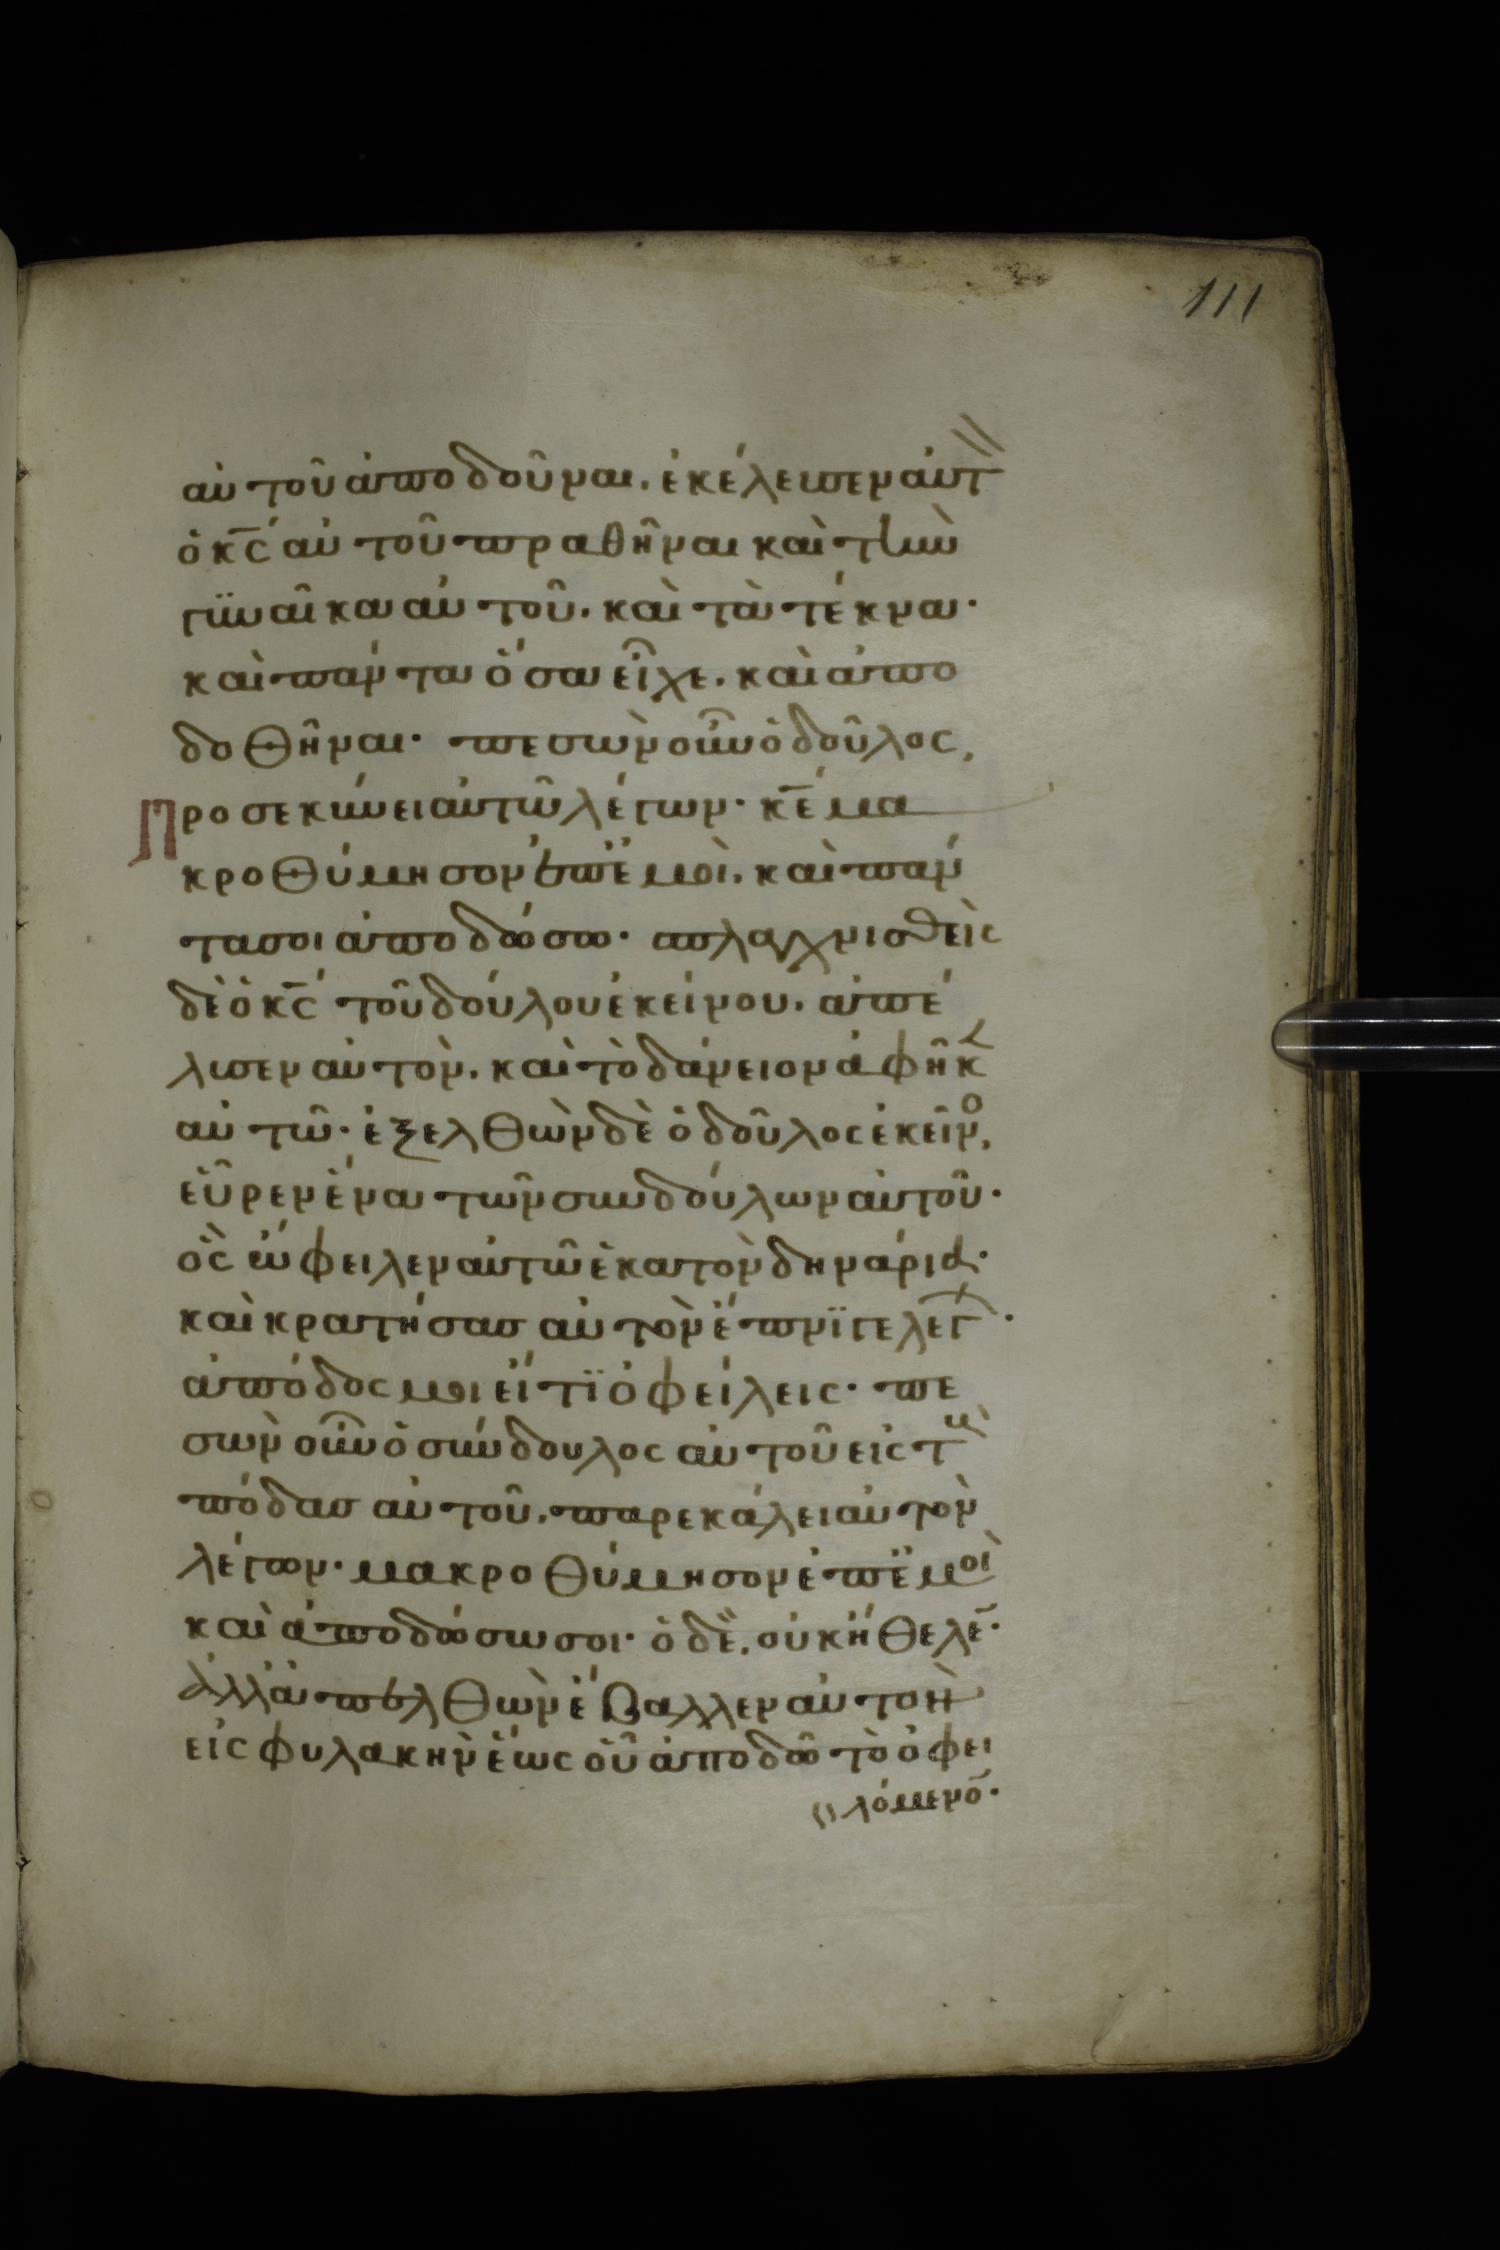 111
αὐτοῦ ἀποδοῦναι. ἐκέλευσεν αὐτ
ὁ κς αὐτοῦ πραθῆναι καὶ τὴν
γϋναῖκα αὐτοῦ. καὶ τὰ τέκνα·
καὶ πάντα ὅσα εἶχε. καὶ ἀπο
δοθῆναι· πεσὼν οὖν ὁ δοῦλος,
Προσεκύνει αὐτῶ λέγων· κε μα
κροθύμησον ἐπ ἐμοὶ. καὶ πάν
τα σοι ἀποδώσω· σπλαγχνισθεὶς
δὲ ὁ κς τοῦ δούλου ἐκείνου. ἀπέ
λυσεν αὐτὸν. καὶ τὸ δάνειον ἀφῆκ
αὐτῶ· ἐξελθὼν δὲ ὁ δοῦλος ἐκεῖνο,
εὗρεν ἕνα τῶν συνδούλων αὐτοῦ·
ὃς ὤφειλεν αὐτῶ ἑκατὸν δηνάρια·
καὶ κρατήσασ αὐτὸν ἔπνϊγε λέγ·
ἀπόδος μοι εἴ τϊ ὀφείλεις· πε
σὼν οὖν ὁ σύνδουλος αὐτοῦ εἰς τ
πόδασ αὐτοῦ. παρεκάλει αὐτὸν
λέγων· μακροθύμησον ἐπ ἐμοὶ
καὶ ἀποδώσω σοι· ὁ δὲ. οὐκ ἤθελε·
ἀλλὰ ἀπελθὼν ἔβαλλεν αὐτὸν
εἰς φυλακὴν ἕως οὗ ἀποδῶ τὸ ὀφει
λόμενο·